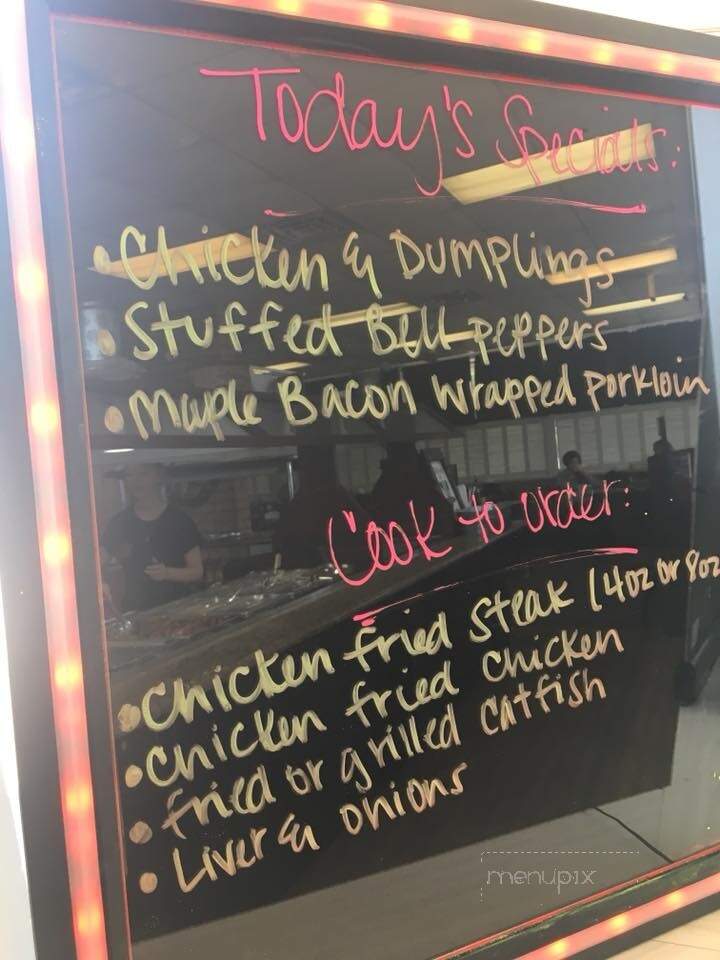 Today's Specials:
• Chicken & Dumplings
• Stuffed Bell peppers
• Maple Bacon Wrapped Porkloin
Cook to order:
• Chicken fried Steak (4oz or 8oz
• Chicken fried Chicken
• fried or grilled catfish
• Liver & onions
menupix